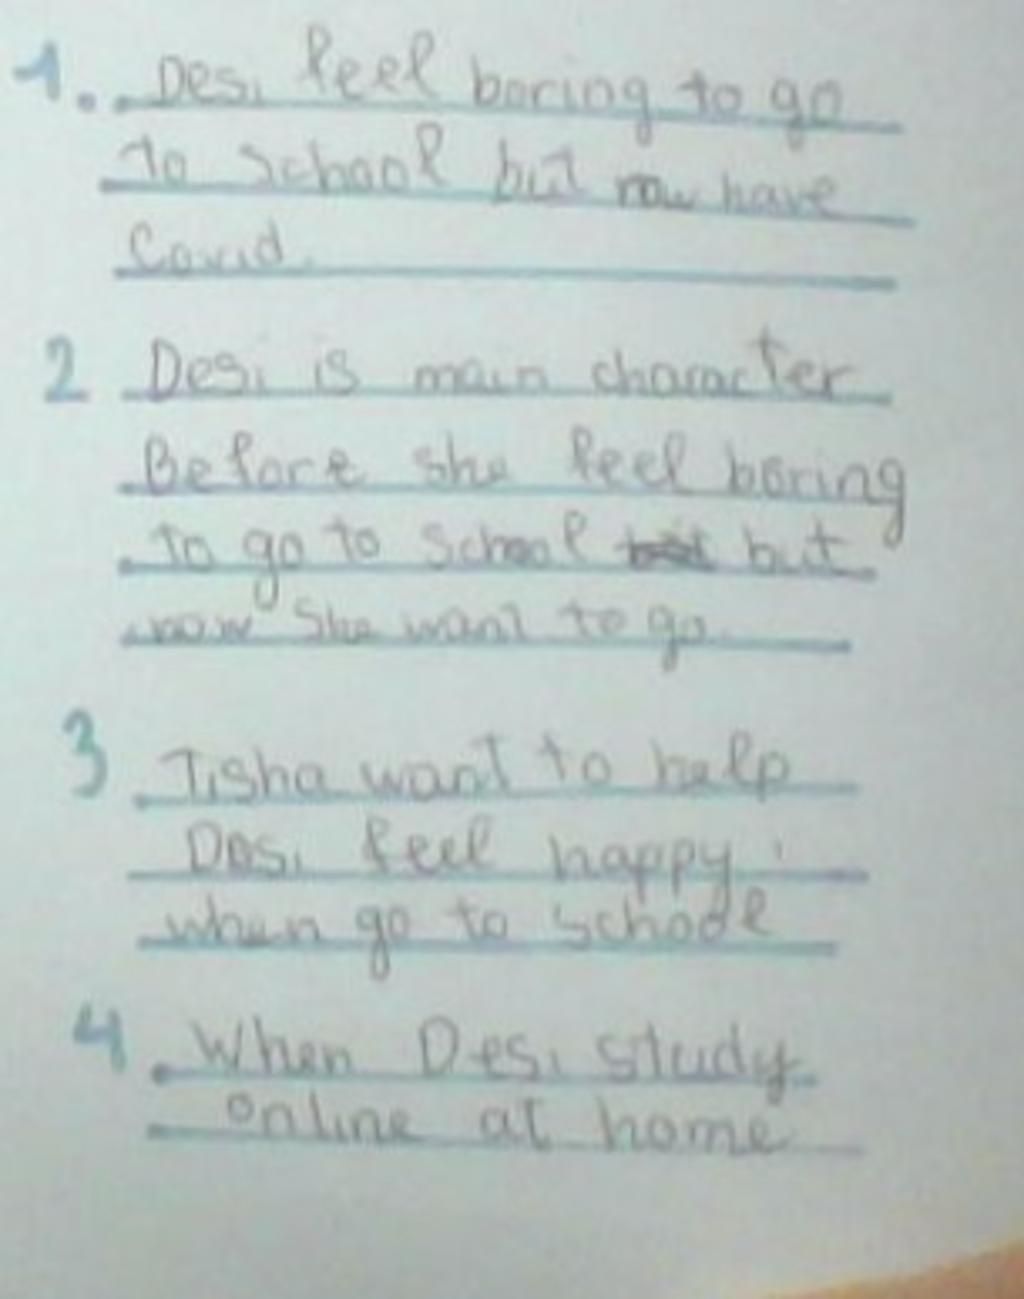 1. Desi feel boring to go
to school but now have
Covid.
2 Desi is main character
Before she feel boring
to go to school but
now she want to go.
3 Tisha want to help
Desi feel happy
when go to school
4 When Desi study
online at home